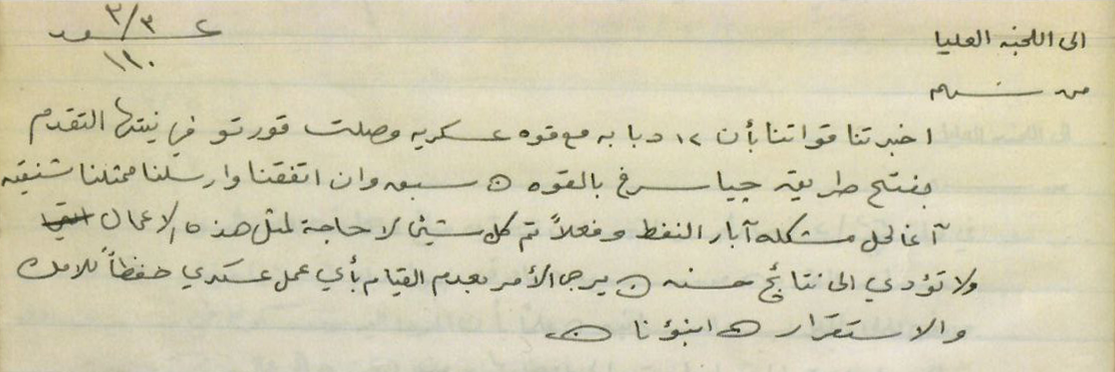 الى اللجنه العليا
٣/٣
١١٠
من
اخبرتنا قواتنا بأن ١٢ دبابه مع قوه عسكريه وصلت قورتو في نيتها التقدم
بفتح طريق جياسرخ بالقوه ن سبق وان اتفقنا وارسلنا ممثلنا شفيق
آغا لحل مشكله آبار النفط وفعلاً تم كل شيئ لا حاجة لمثل هذه الاعمال
ولا تؤدي الى نتائج حسنه ن يرجى الأمر بعدم القيام بأي عمل عسكري حفظاً للامن
والاستقرار ن انبؤنا ن